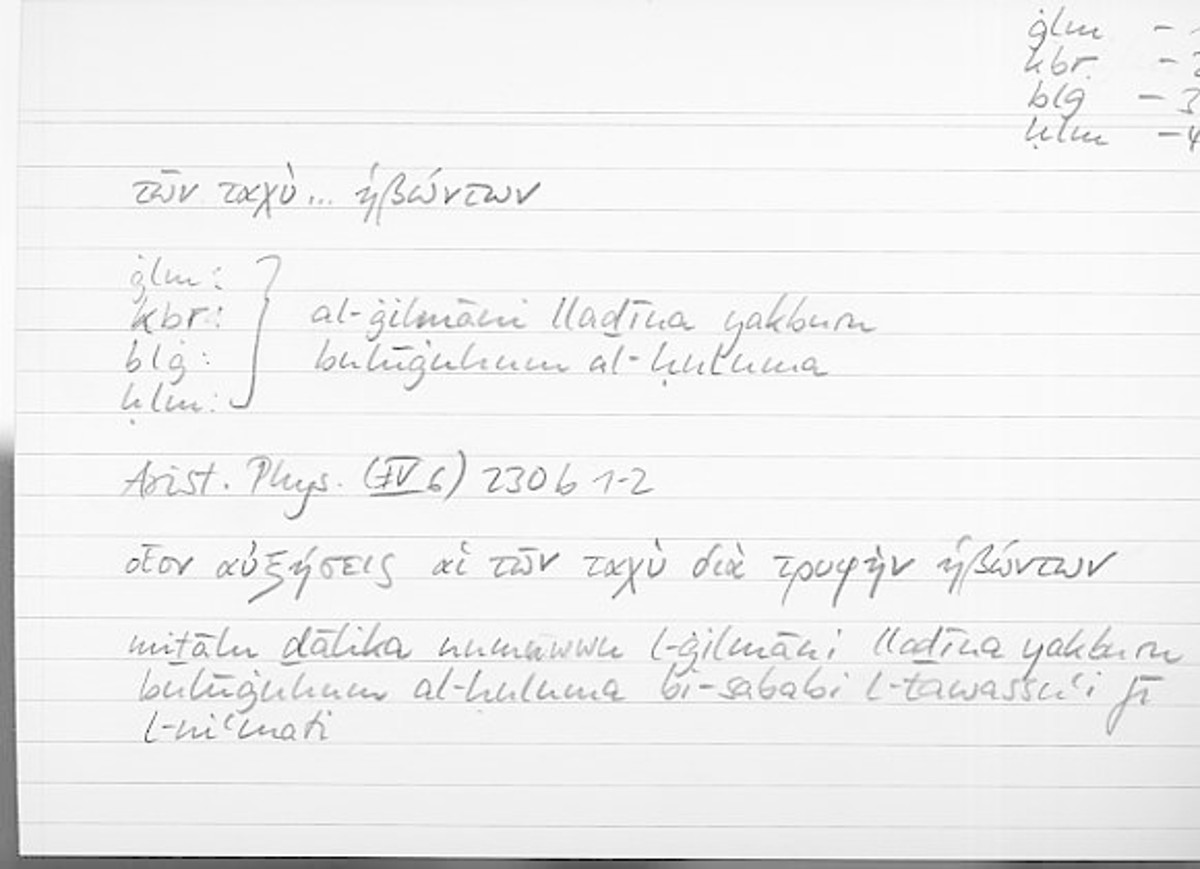 ġlm - 1
kbr - 2
blġ - 3
ḥlm - 4
τῶν ταχὺ... ἡβώντων
ġlm:
kbr: al-ġilmāni llaḏīna yakburu
blġ: bulūġuhum al-ḥuluma
ḥlm:
Arist. Phys. (IV 6) 230 b 1-2
οἷον αὐξήσεις αἱ τῶν ταχὺ διὰ τροφὴν ἡβώντων
miṯālu ḏālika numūwwu l-ġilmāni llaḏīna yakburu
bulūġuhum al-ḥuluma bi-sababi l-tawassuʿi fī
l-niʿmati